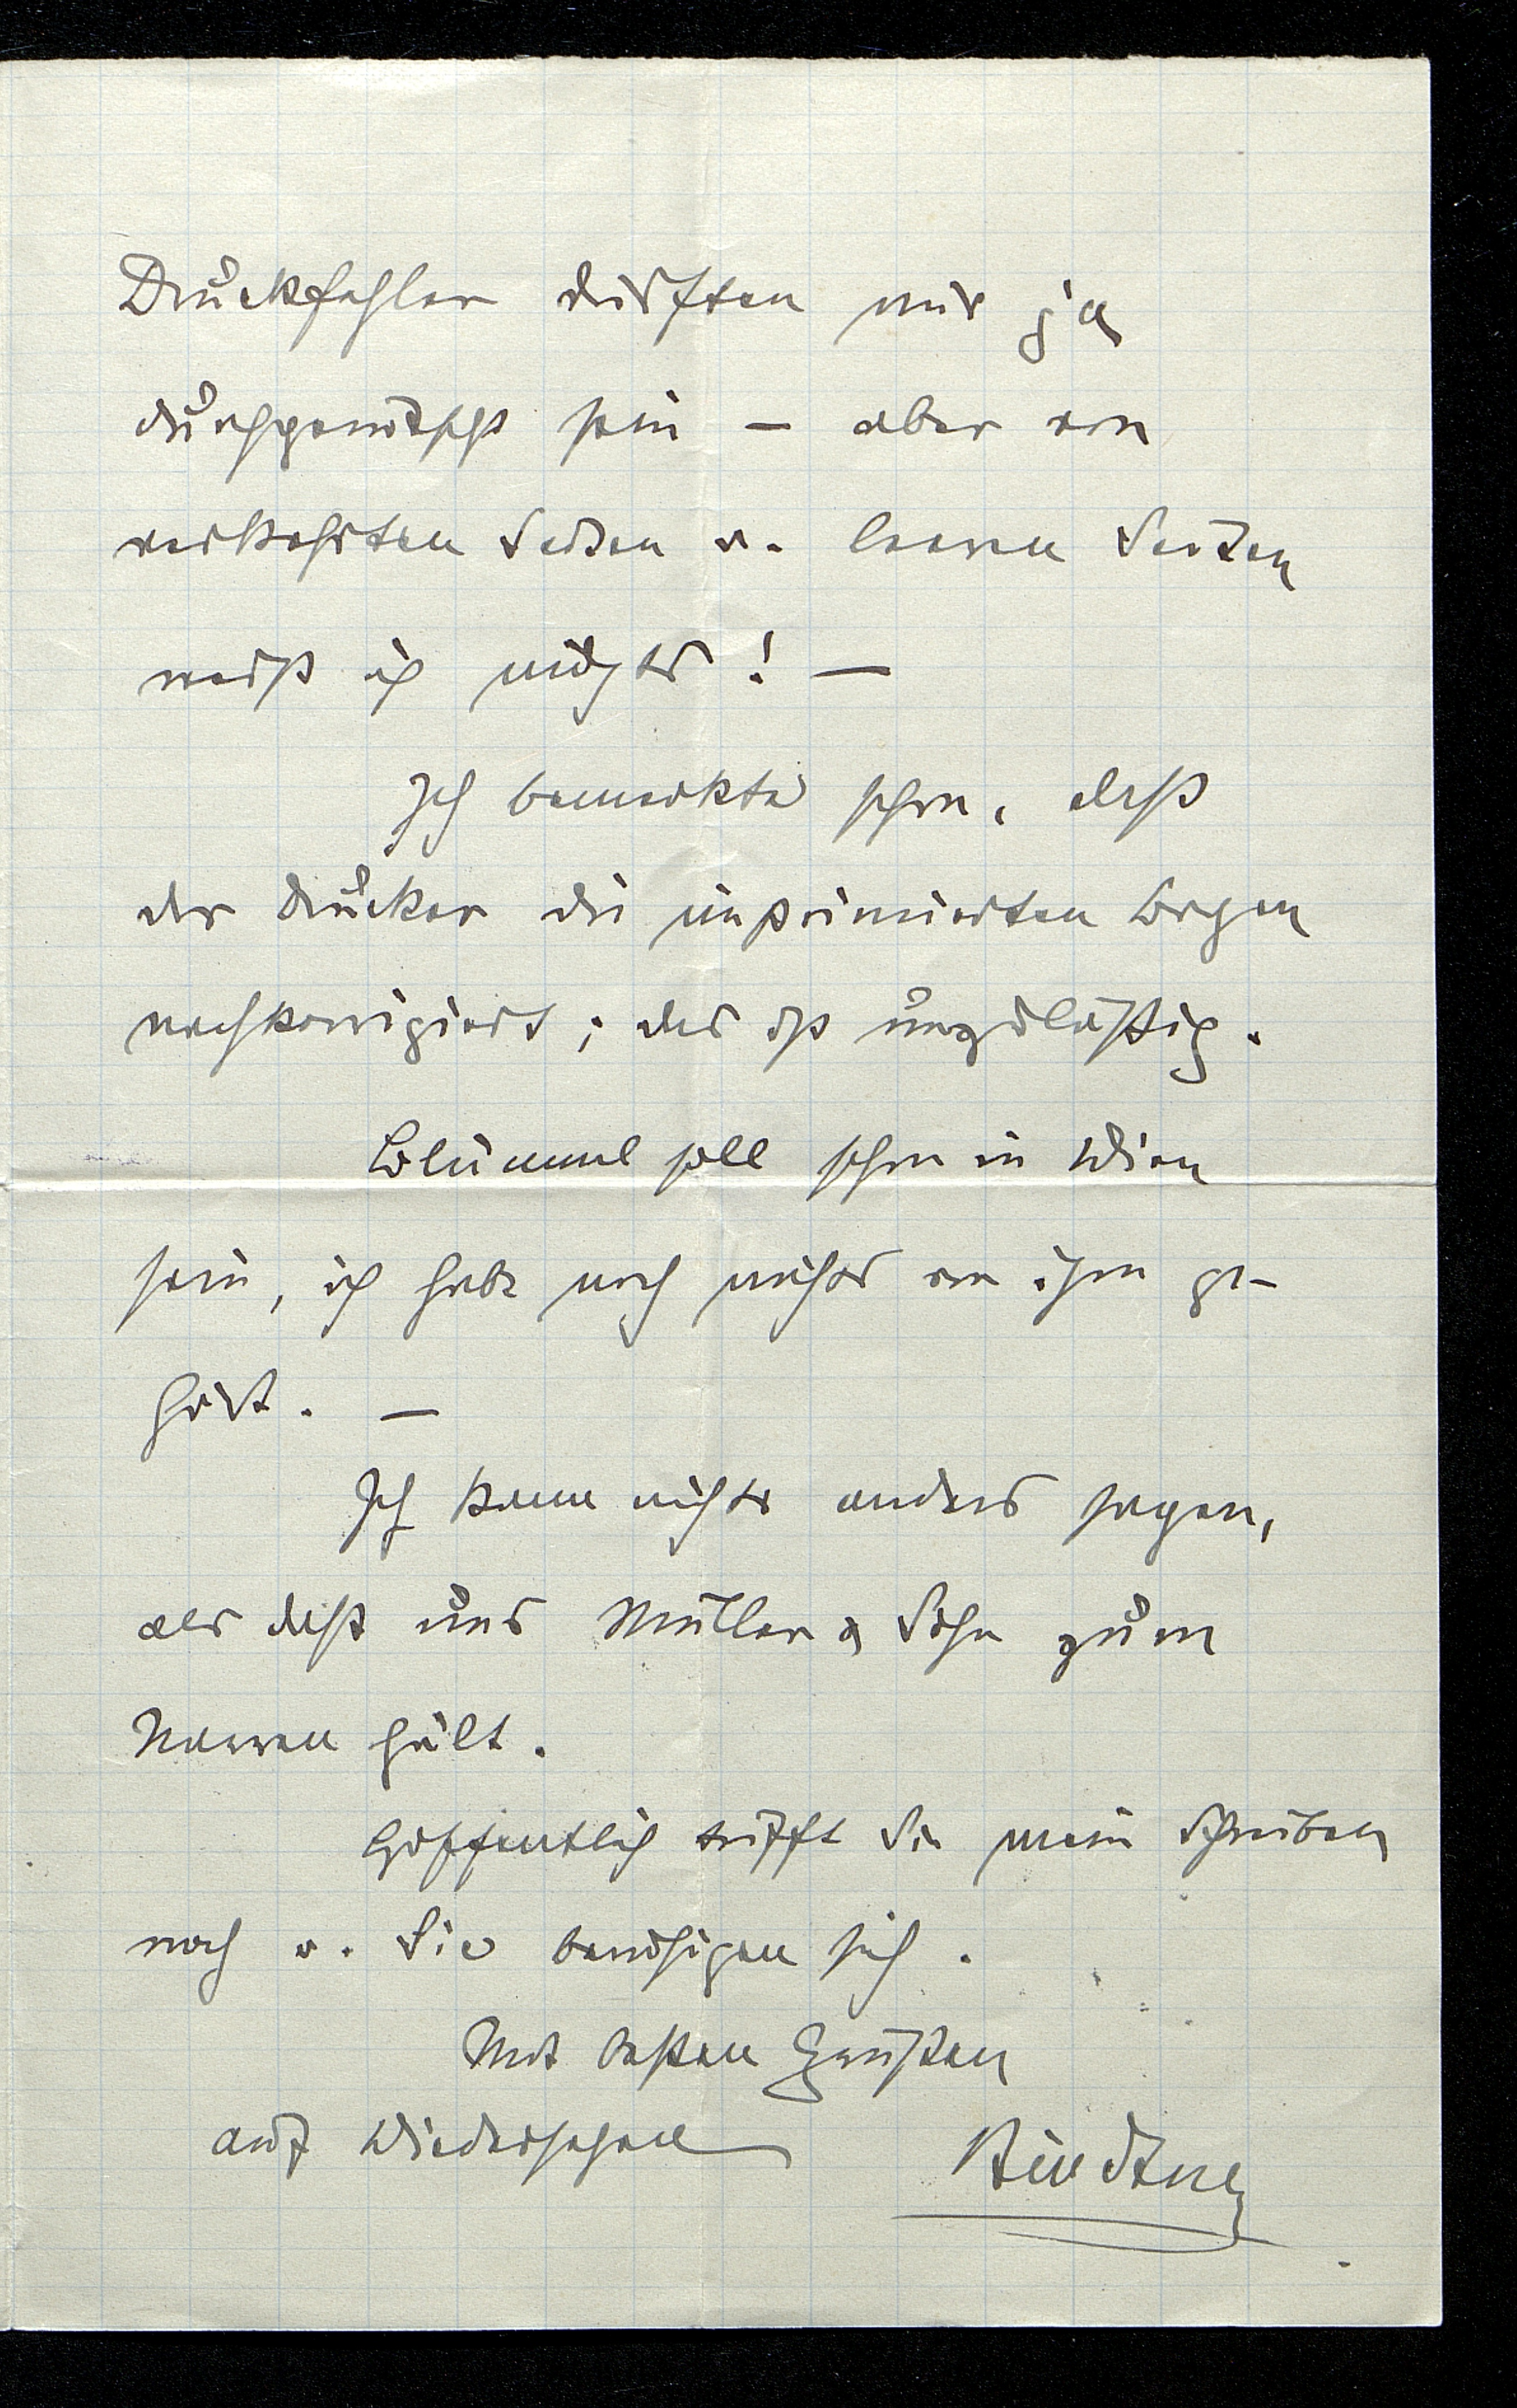 Druckfehler dürften mir ja
durchgerutscht sein – aber von
verkehrten Seiten u. leeren Seiten
weiß ich nichts! –
Ich bemerkte schon, daß
der Drucker die imprimierten Bogen
nachkorrigiert; das ist unzulässig.
Blümml soll schon in Wien
sein, ich habe noch nichts von ihm ge-
hört. –
Ich kann nichts anders sagen,
als daß uns Müller & Sohn zum
Narren hält.
Hoffentlich trifft Sie mein Schreiben
noch u. Sie beruhigen sich.
Mit besten Grüßen
auf Wiedersehen